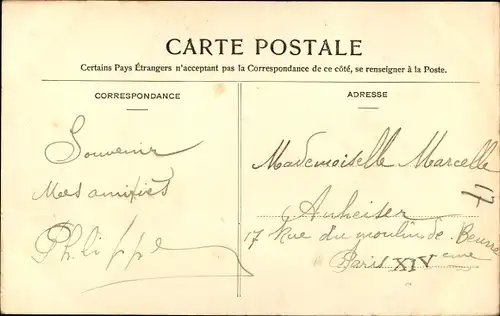 CARTE POSTALE
Certains Pays Étrangers n'acceptant pas la Correspondance de ce côté, se renseigner à la Poste.
CORRESPONDANCE
Souvenir
Mes amitiés
Philippe
ADRESSE
Mademoiselle Marcelle
Anheiser
17
17 Rue du moulin de Beurre
Paris XIV eme